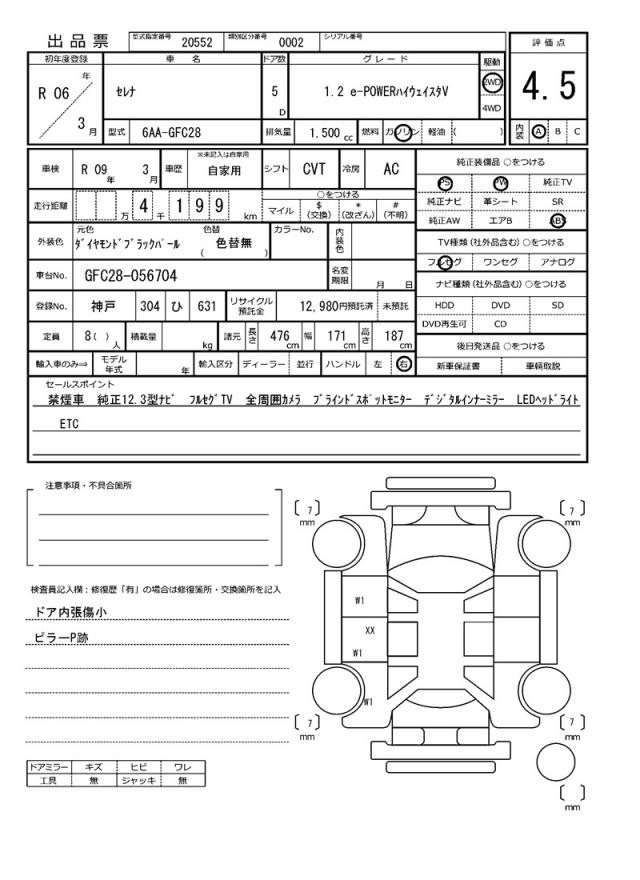 出品票 型式指定番号 20552 類別区分番号 0002 シリアル番号
評価点
初年度登録 車名 ドア数 グレード 駆動
R 06 年 3 月 セレナ 5 D 1.2 e-POWERハイウェイスタV 2WD 4WD
4.5
型式 6AA-GFC28 排気量 1.500 cc 燃料 ガソリン 軽油 ( )
内装 A B C
車検 R 09 年 3 月 車歴 ※未記入は自家用 自家用 シフト CVT 冷房 AC
走行距離 万 4 千 1 9 9 km
○をつける
マイル $(交換) *(改ざん) #(不明)
外装色 元色 ダイヤモンドブラックパール 色替 ( 色替無 ) カラーNo. 内装色
車台No. GFC28-056704 名変期限 月 日
登録No. 神戸 304 ひ 631 リサイクル預託金 12,980円預託済 未預託
定員 8( ) 人 積載量 kg 諸元 長さ 476 cm 幅 171 cm 高さ 187 cm
輸入車のみ⇒ モデル年式 年 輸入区分 ディーラー 並行 ハンドル 左 右
純正装備品 ○をつける
PS PW 純正TV
純正ナビ 革シート SR
純正AW エアB ABS
TV種類(社外品含む) ○をつける
フルセグ ワンセグ アナログ
ナビ種類(社外品含む) ○をつける
HDD DVD SD
DVD再生可 CD
後日発送品 ○をつける
新車保証書 車輌取説
セールスポイント
禁煙車 純正12.3型ナビ フルセグTV 全周囲カメラ ブラインドスポットモニター デジタルインナーミラー LEDヘッドライト
ETC
注意事項・不具合箇所
検査員記入欄：修復歴「有」の場合は修復箇所・交換箇所を記入
ドア内張傷小
ピラーP跡
ドアミラー キズ ヒビ ワレ
工具 無 ジャッキ 無
[ 7 ] mm
[ 7 ] mm
W1
XX
W1
W1
[ 7 ] mm
[ 7 ] mm
[ ] mm